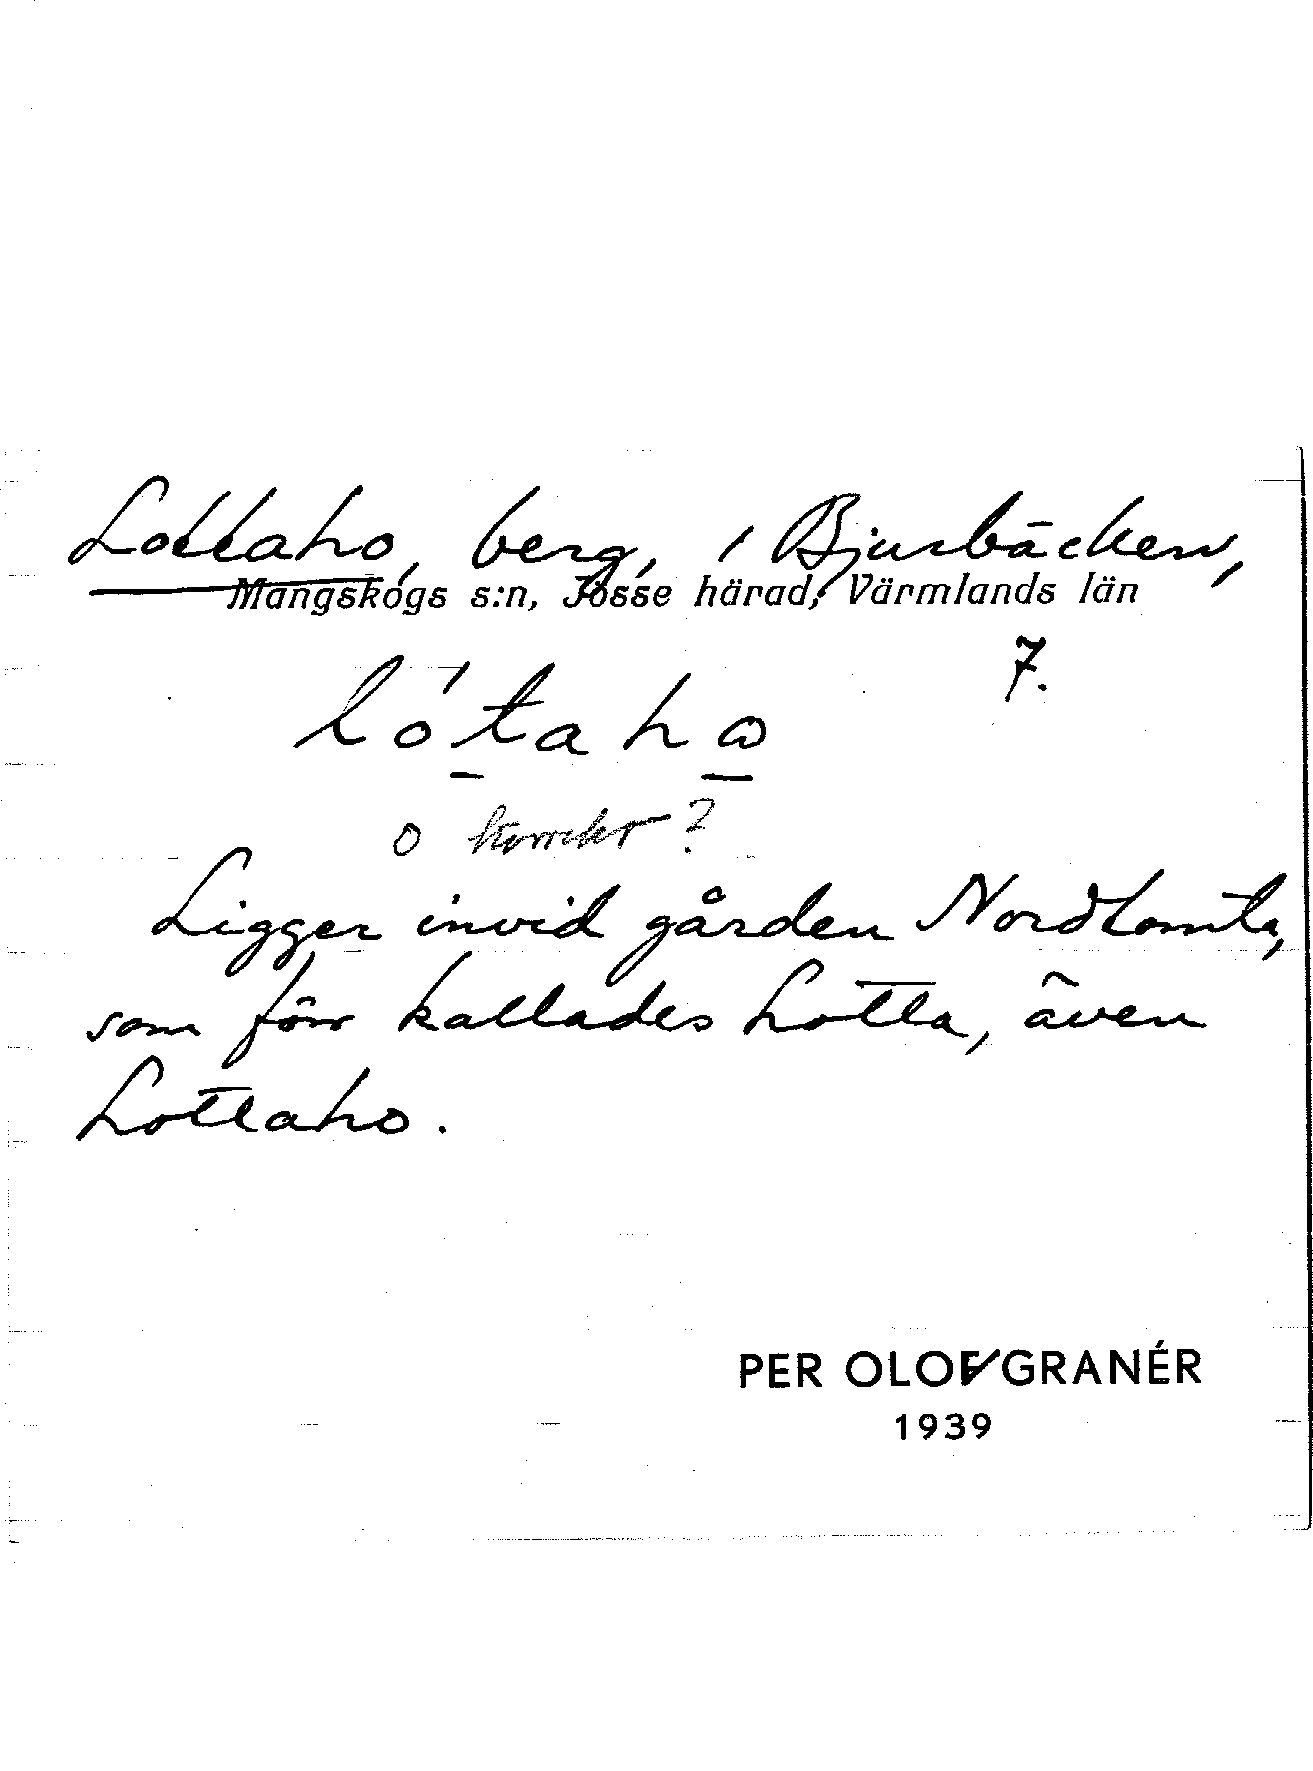 Lottaho, berg, i Bjurbäcken,
Mangskogs s:n, Jösse härad, Värmlands län
7.
lòtaho
o korrekt?
Ligger invid gården Nordtomta,
som förr kallades Lotta, även
Lottaho.
PER OLOF GRANÉR
1939